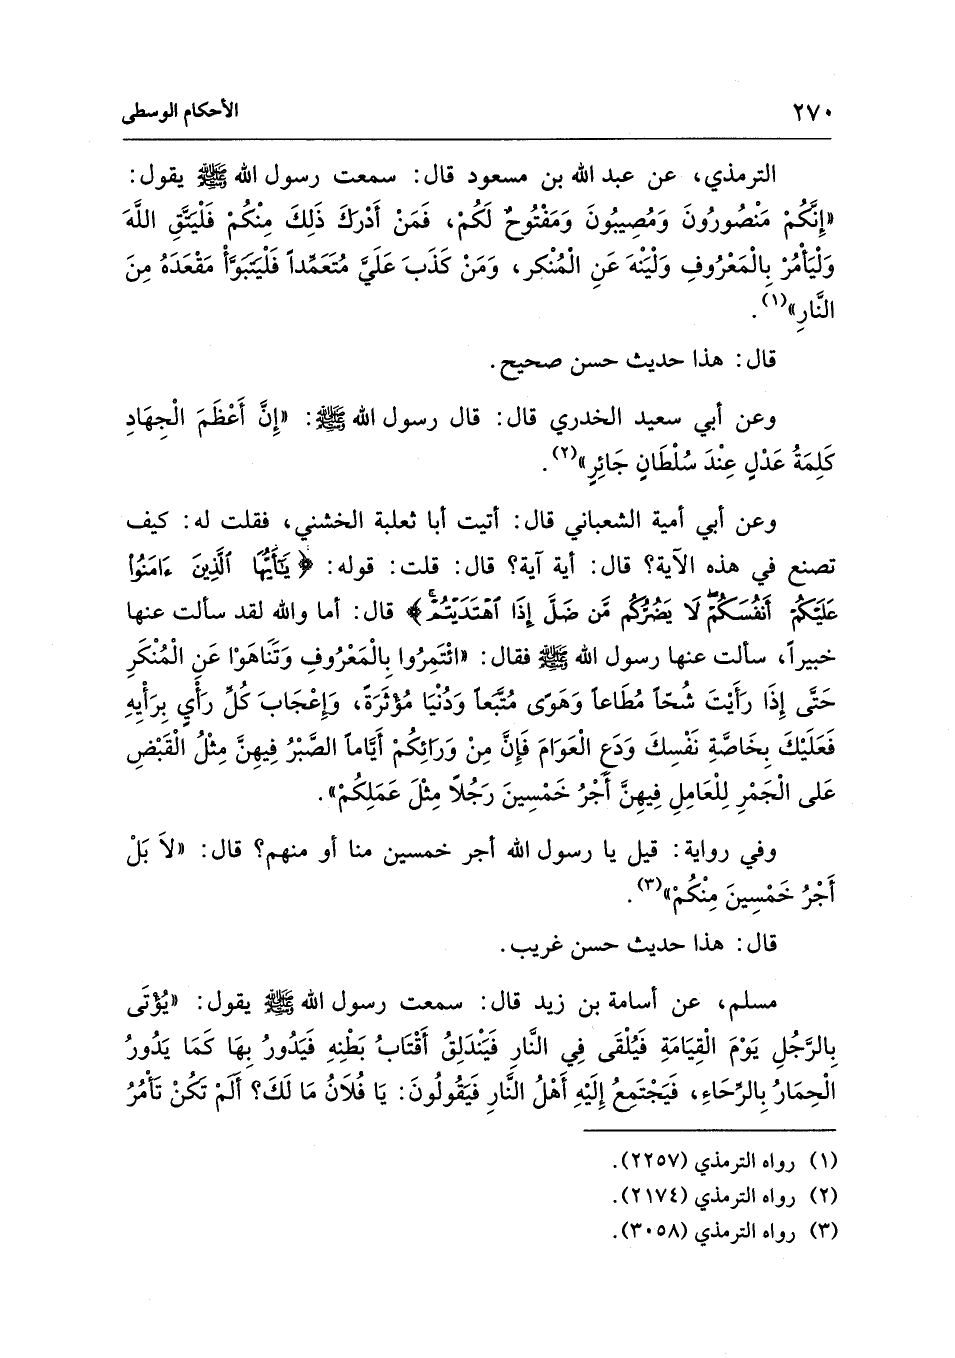 ٢٧٠ الأحكام الوسطى
الترمذي، عن عبد الله بن مسعود قال: سمعت رسول الله ﷺ يقول:
«إِنَّكُمْ مَنْصُورُونَ وَمُصِيبُونَ وَمَفْتُوحٌ لَكُمْ، فَمَنْ أَدْرَكَ ذَلِكَ مِنْكُمْ فَلْيَتَّقِ اللَّهَ
وَلْيَأْمُرْ بِالْمَعْرُوفِ وَلْيَنْهَ عَنِ الْمُنْكَرِ، وَمَنْ كَذَبَ عَلَيَّ مُتَعَمِّداً فَلْيَتَبَوَّأْ مَقْعَدَهُ مِنَ
النَّارِ»(١).
قال: هذا حديث حسن صحيح.
وعن أبي سعيد الخدري قال: قال رسول الله ﷺ: «إِنَّ أَعْظَمَ الْجِهَادِ
كَلِمَةُ عَدْلٍ عِنْدَ سُلْطَانٍ جَائِرٍ»(٢).
وعن أبي أمية الشعباني قال: أتيت أبا ثعلبة الخشني، فقلت له: كيف
تصنع في هذه الآية؟ قال: أية آية؟ قال: قلت: قوله: ﴿يَٰٓأَيُّهَا ٱلَّذِينَ ءَامَنُوا۟
عَلَيْكُمْ أَنفُسَكُمْۖ لَا يَضُرُّكُم مَّن ضَلَّ إِذَا ٱهْتَدَيْتُمْۚ﴾ قال: أما والله لقد سألت عنها
خبيراً، سألت عنها رسول الله ﷺ فقال: «ائْتَمِرُوا بِالْمَعْرُوفِ وَتَنَاهَوْا عَنِ الْمُنْكَرِ
حَتَّى إِذَا رَأَيْتَ شُحّاً مُطَاعاً وَهَوًى مُتَّبَعاً وَدُنْيَا مُؤْثَرَةً، وَإِعْجَابَ كُلِّ رَأْيٍ بِرَأْيِهِ
فَعَلَيْكَ بِخَاصَّةِ نَفْسِكَ وَدَعِ الْعَوَامَ فَإِنَّ مِنْ وَرَائِكُمْ أَيَّاماً الصَّبْرُ فِيهِنَّ مِثْلُ الْقَبْضِ
عَلى الْجَمْرِ لِلْعَامِلِ فِيهِنَّ أَجْرُ خَمْسِينَ رَجُلاً مِثْلَ عَمَلِكُمْ».
وفي رواية: قيل يا رسول الله أجر خمسين منا أو منهم؟ قال: «لاَ بَلْ
أَجْرُ خَمْسِينَ مِنْكُمْ»(٣).
قال: هذا حديث حسن غريب.
مسلم، عن أسامة بن زيد قال: سمعت رسول الله ﷺ يقول: «يُؤْتَى
بِالرَّجُلِ يَوْمَ الْقِيَامَةِ فَيُلْقَى فِي النَّارِ فَيَنْدَلِقُ أَقْتَابُ بَطْنِهِ فَيَدُورُ بِهَا كَمَا يَدُورُ
الْحِمَارُ بِالرِّحَاءِ، فَيَجْتَمِعُ إِلَيْهِ أَهْلُ النَّارِ فَيَقُولُونَ: يَا فُلَانُ مَا لَكَ؟ أَلَمْ تَكُنْ تَأْمُرُ
(١) رواه الترمذي (٢٢٥٧).
(٢) رواه الترمذي (٢١٧٤).
(٣) رواه الترمذي (٣٠٥٨).